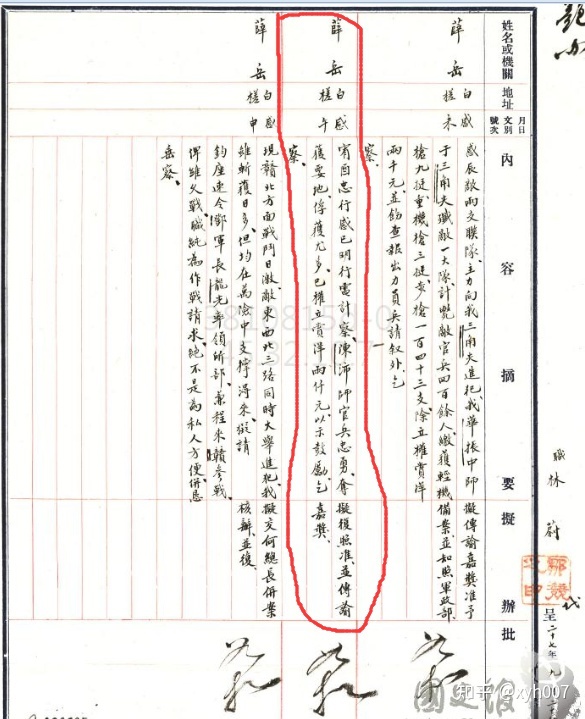 職林蔚代呈二十七年九
姓名或機關 地址 月日文別號次 內容摘要 擬辦 批
薛岳 白槎 感未
感辰敵兩支聯隊、主力向我三角尖進犯、我華振中師 擬傳諭嘉獎准予
于三角尖殲敵一大隊計斃敵官兵四百餘人、繳獲輕機 備案、並知照軍政部、
槍九挺重機槍三挺、步槍一百四十三支除立權賞洋
兩千元、並飭查報出力員兵請叙外、乞
察、
薛岳 白槎 感午
甯酉忠行感巳明行電計察、陳沛師官兵忠勇、奪 擬復照准、並傳諭
獲要地、俘獲尤多、已權立賞洋兩仟元以示鼓勵、乞 嘉獎、
察、
薛岳 白槎 感申
現贛北方面戰鬥日激、敵東西北三路同時大舉進犯、我 擬交何總長併案
雖斬獲日多、但均在萬險中支撐得來、擬請 核辦並復、
鈞座速令鄧軍長龍光率領所部、兼程來贛參戰、
俾雖久戰、職純為作戰請求、絕不是為私人方便、併懇
岳察、
知乎 @xyh007